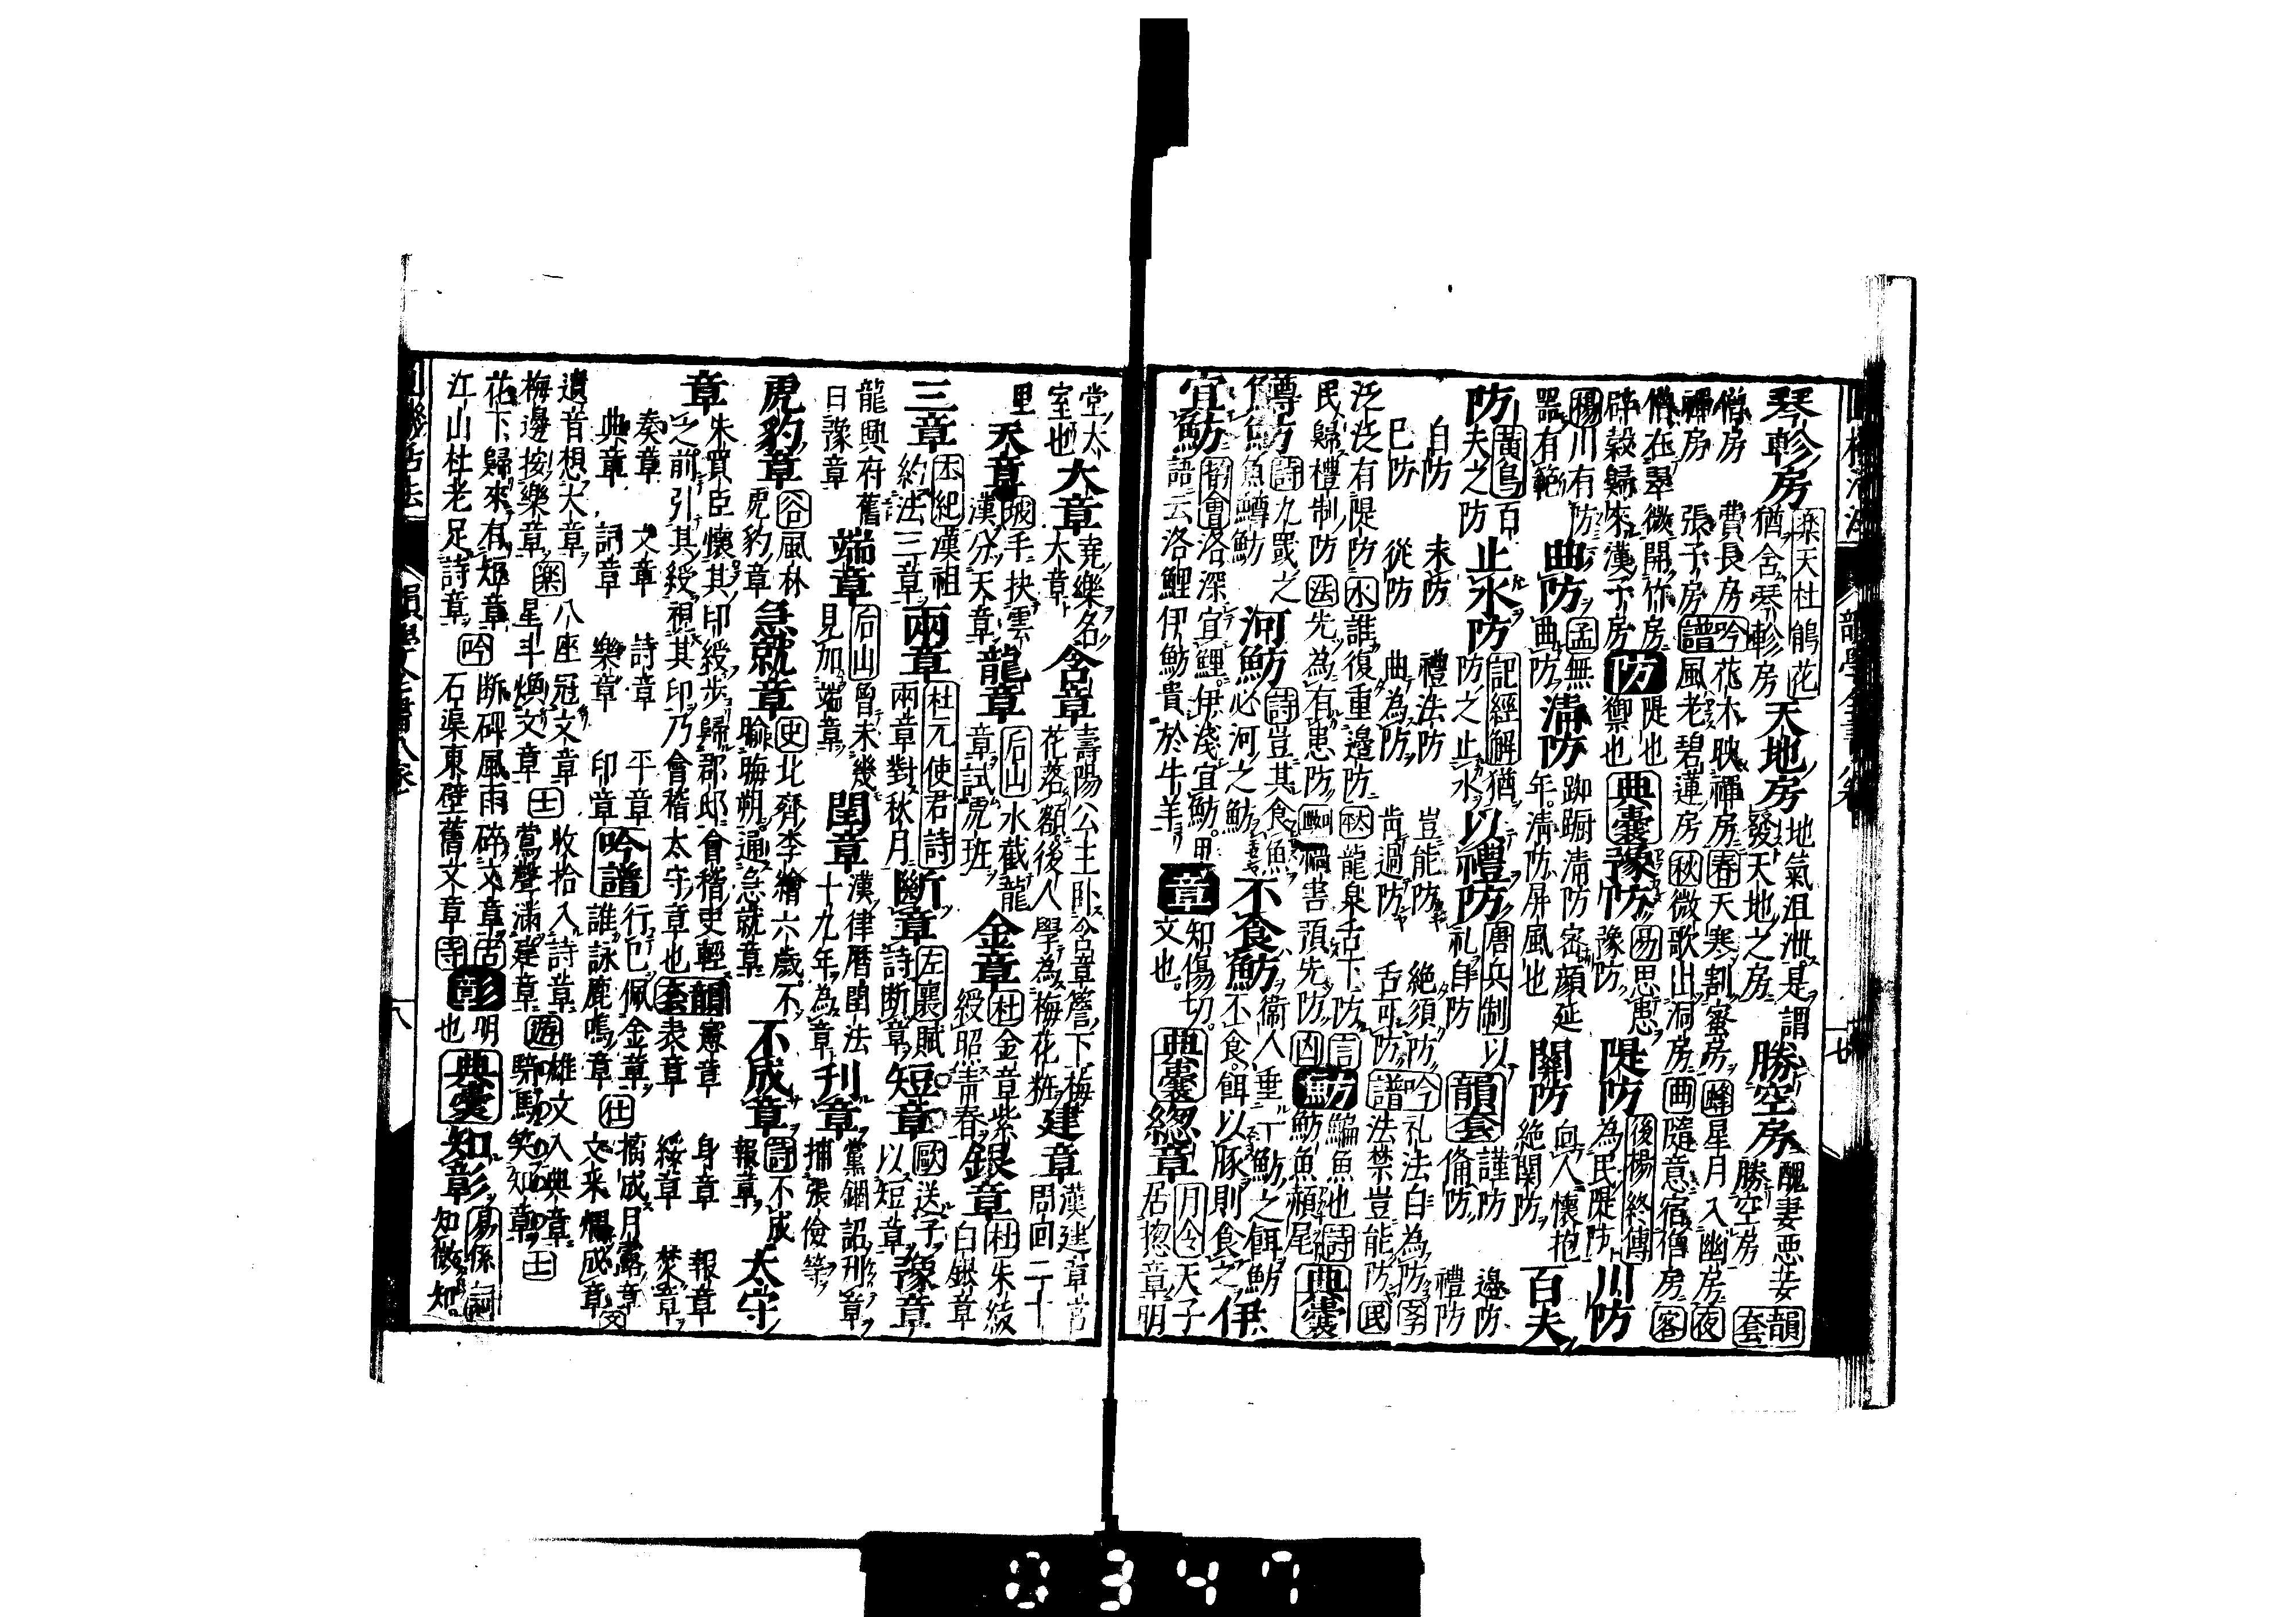 琴軫房 樂天杜鵑花猶含琴軫房 天地房 地氣沮泄是謂發天地之房 勝空房 醜妻悪妾勝空房 韻套
僧房 費長房 吟花木映禅房 春天寒割蜜房 蜂星月入幽房 夜
禅房 張子房 譜風老碧蓮房 秋微歌出洞房 曲隨意宿僧房 客
僧在翠微開竹房 防 隄也禦也 典囊 豫防 易思患豫防 隄防 後楊終傳為民隄防 川防
辟穀歸來漢子房
楊川有防器有範 曲防 孟無曲防 清防 踟蹰清防密顔延年清防屏風也 關防 向人懷抱絶関防 百夫
防 黄鳥百夫之防 止水防 記經解猶防之止水 以禮防 唐兵制以礼自防 韻套 謹防 邊防 倫防 禮防
自防 未防 禮法防 豈能防 絶須防 吟礼法自為防
已防 從防 曲為防 肯過防 舌可防 譜法禁豈能防 民
泛泛有隄防 水誰復重邊防 秋龍泉舌下防 言 魴 鯿魚也 詩魴魚赬尾 典囊
民歸禮制防 法先為有患防 禍書預先防 凶
鱒魴 詩九罭之魚鱒魴 河魴 詩豈其食魚必河之魴 不食魴 衞人垂一魴之餌魴不食餌以豚則食之 伊
宜魴 洛深宜鯉伊淺宜魴 語云洛鯉伊魴貴於牛羊 章 知傷切文也 典囊 總章 月令天子居揔章明
堂太室也 大章 堯樂名大章 含章 壽陽公主卧含章簷下梅花落額後人學為梅花粧 建章 漢建章宮問向二十
里 天章 坡手抉雲漢分天章 龍章 后山水截龍章試虎班 金章 杜金章紫綬照青春 銀章 杜朱紱白銀章
三章 丕紀漢祖約法三章 兩章 杜元使君詩兩章對秋月 斷章 左襄賦詩斷章 短章 歐送子以短章 豫章
龍興府舊曰豫章 端章 后山曾未幾見加端章 閏章 漢律暦閏法十九年為章 刊章 黨錮詔刊章捕張儉等
虎豹章 谷風林虎豹章 急就章 史北齊李繪六歲不踰晦朔通急就章 不成章 詩不成報章 太守
章 朱買臣懷其印綬歩歸郡邸會稽史輕之前引其綬視其印乃會稽太守章也 韻套 憲章 身章 報章
奏章 文章 詩章 平章 表章 綬章 焚章
典章 詞章 樂章 印章 吟譜 行已佩金章 仕摛成月露章 文
遺音想大章 樂八座冠文章 士收拾入詩章 雄文入典章
誰詠鹿鳴章 文来燗成章
梅邊按樂章 星斗煥文章 鶯聲滿建章 遊騎馬笑知章 士
花下歸來有短章 吟断碑風雨碎文章 古 彰 明也 典囊 知彰 易係詞知微知
江山杜老足詩章 石渠東壁舊文章 寺
0347